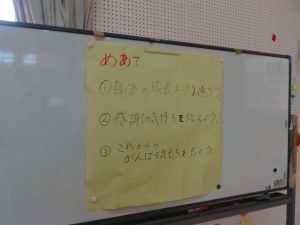 めあて
①自分の成長をふり返ろう
②感謝の気持ちを伝えよう。
③これからの
がんばる気もちをもとう。